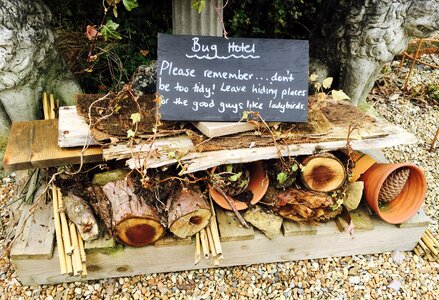 Bug Hotel
Please remember... don't
be too tidy! Leave hiding places
for the good guys like ladybirds.